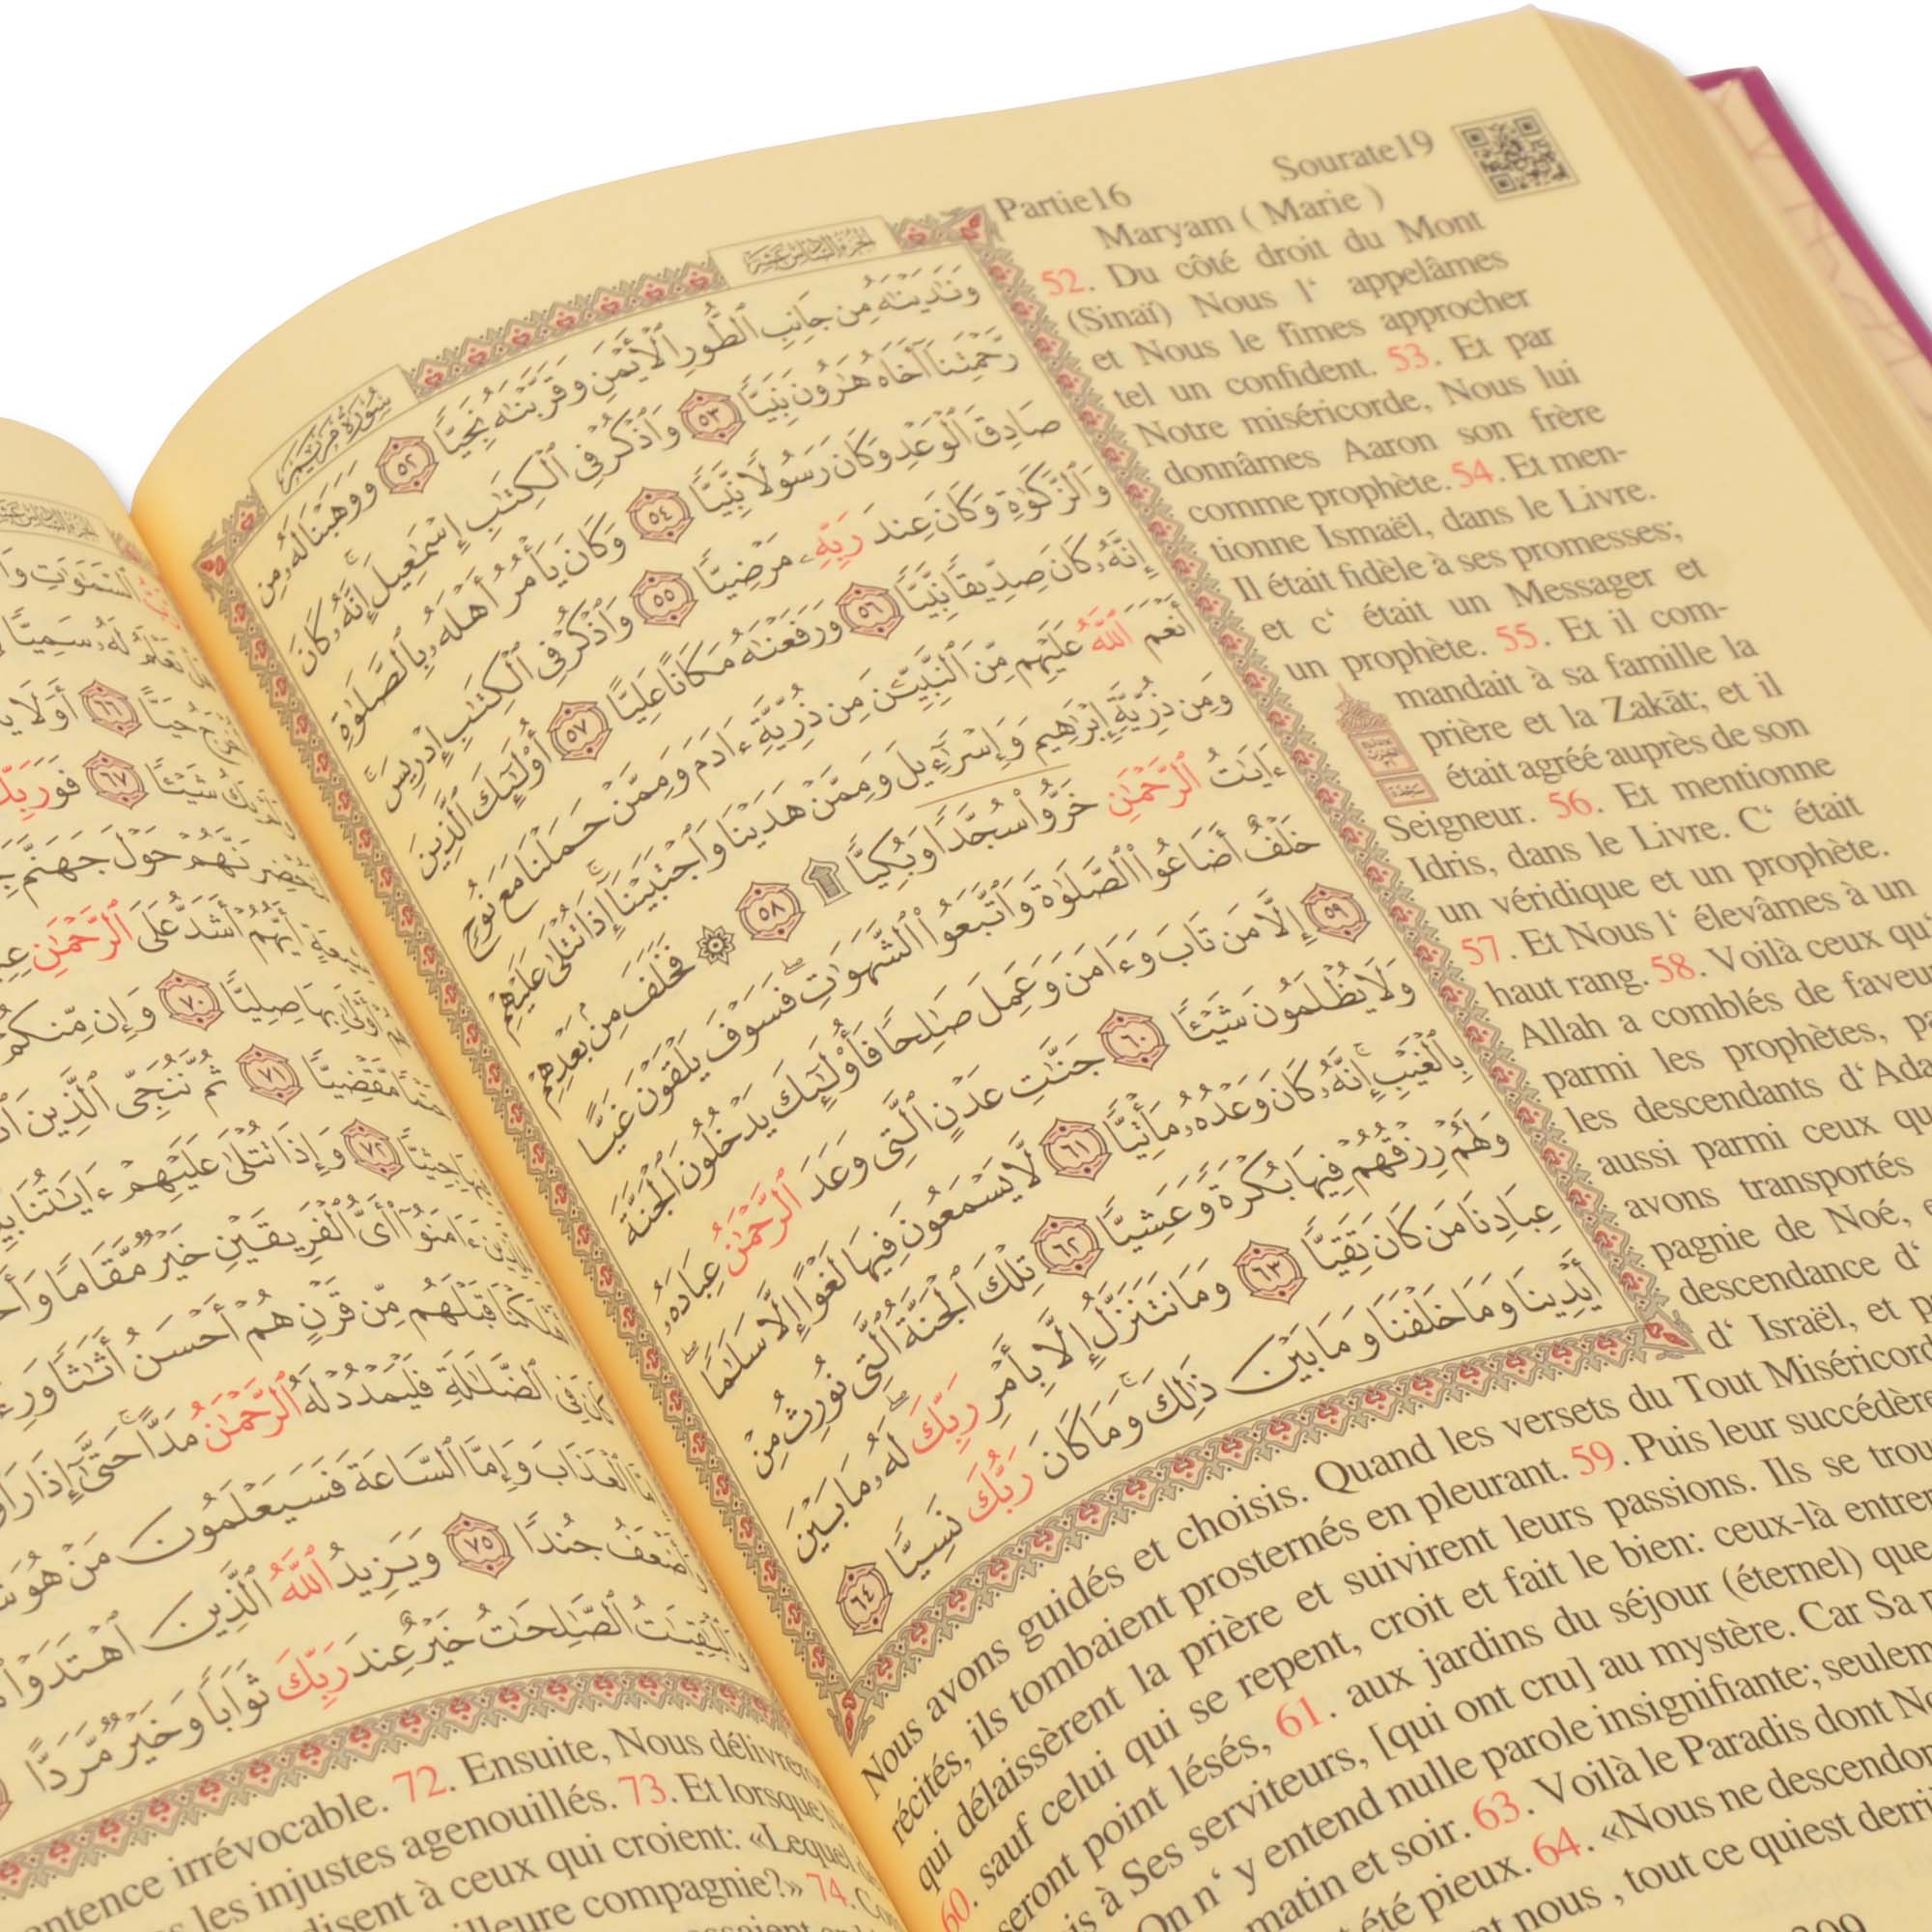 Partie16 Sourate19
Maryam ( Marie )
الجزء السادس عشر
سورة مريم
وَنَٰدَيْنَٰهُ مِن جَانِبِ ٱلطُّورِ ٱلْأَيْمَنِ وَقَرَّبْنَٰهُ نَجِيًّا ٥٢ وَوَهَبْنَا لَهُۥ مِن
رَّحْمَتِنَآ أَخَاهُ هَٰرُونَ نَبِيًّا ٥٣ وَٱذْكُرْ فِى ٱلْكِتَٰبِ إِسْمَٰعِيلَ ۚ إِنَّهُۥ كَانَ
صَادِقَ ٱلْوَعْدِ وَكَانَ رَسُولًا نَّبِيًّا ٥٤ وَكَانَ يَأْمُرُ أَهْلَهُۥ بِٱلصَّلَوٰةِ
وَٱلزَّكَوٰةِ وَكَانَ عِندَ رَبِّهِۦ مَرْضِيًّا ٥٥ وَٱذْكُرْ فِى ٱلْكِتَٰبِ إِدْرِيسَ ۚ
إِنَّهُۥ كَانَ صِدِّيقًا نَّبِيًّا ٥٦ وَرَفَعْنَٰهُ مَكَانًا عَلِيًّا ٥٧ أُو۟لَٰٓئِكَ ٱلَّذِينَ
أَنْعَمَ ٱللَّهُ عَلَيْهِم مِّنَ ٱلنَّبِيِّۦنَ مِن ذُرِّيَّةِ ءَادَمَ وَمِمَّنْ حَمَلْنَا مَعَ نُوحٍ
وَمِن ذُرِّيَّةِ إِبْرَٰهِيمَ وَإِسْرَٰٓءِيلَ وَمِمَّنْ هَدَيْنَا وَٱجْتَبَيْنَآ ۚ إِذَا تُتْلَىٰ عَلَيْهِمْ
ءَايَٰتُ ٱلرَّحْمَٰنِ خَرُّوا۟ سُجَّدًا وَبُكِيًّا ۩ ٥٨ ۞ فَخَلَفَ مِنۢ بَعْدِهِمْ
خَلْفٌ أَضَاعُوا۟ ٱلصَّلَوٰةَ وَٱتَّبَعُوا۟ ٱلشَّهَوَٰتِ ۖ فَسَوْفَ يَلْقَوْنَ غَيًّا
٥٩ إِلَّا مَن تَابَ وَءَامَنَ وَعَمِلَ صَٰلِحًا فَأُو۟لَٰٓئِكَ يَدْخُلُونَ ٱلْجَنَّةَ
وَلَا يُظْلَمُونَ شَيْـًٔا ٦٠ جَنَّٰتِ عَدْنٍ ٱلَّتِى وَعَدَ ٱلرَّحْمَٰنُ عِبَادَهُۥ
بِٱلْغَيْبِ ۚ إِنَّهُۥ كَانَ وَعْدُهُۥ مَأْتِيًّا ٦١ لَّا يَسْمَعُونَ فِيهَا لَغْوًا إِلَّا سَلَٰمًا ۖ
وَلَهُمْ رِزْقُهُمْ فِيهَا بُكْرَةً وَعَشِيًّا ٦٢ تِلْكَ ٱلْجَنَّةُ ٱلَّتِى نُورِثُ مِنْ
عِبَادِنَا مَن كَانَ تَقِيًّا ٦٣ وَمَا نَتَنَزَّلُ إِلَّا بِأَمْرِ رَبِّكَ ۖ لَهُۥ مَا بَيْنَ
أَيْدِينَا وَمَا خَلْفَنَا وَمَا بَيْنَ ذَٰلِكَ ۚ وَمَا كَانَ رَبُّكَ نَسِيًّا ٦٤
52. Du côté droit du Mont
(Sinaï) Nous l‘ appelâmes
et Nous le fîmes approcher
tel un confident. 53. Et par
Notre miséricorde, Nous lui
donnâmes Aaron son frère
comme prophète. 54. Et men-
tionne Ismaël, dans le Livre.
Il était fidèle à ses promesses;
et c‘ était un Messager et
un prophète. 55. Et il com-
mandait à sa famille la
prière et la Zakāt; et il
était agréé auprès de son
Seigneur. 56. Et mentionne
Idris, dans le Livre. C‘ était
un véridique et un prophète.
57. Et Nous l‘ élevâmes à un
haut rang. 58. Voilà ceux qu‘
Allah a comblés de faveu
parmi les prophètes, pa
les descendants d‘Ada
aussi parmi ceux qu
avons transportés
pagnie de Noé, e
descendance d‘
d‘ Israël, et p
Nous avons guidés et choisis. Quand les versets du Tout Miséricord
récités, ils tombaient prosternés en pleurant. 59. Puis leur succédère
qui délaissèrent la prière et suivirent leurs passions. Ils se trou
60. sauf celui qui se repent, croit et fait le bien: ceux-là entrer
seront point lésés, 61. aux jardins du séjour (éternel) que
is à Ses serviteurs, [qui ont cru] au mystère. Car Sa p
On n‘ y entend nulle parole insignifiante; seulem
matin et soir. 63. Voilà le Paradis dont No
été pieux. 64. «Nous ne descendon
nt nous , tout ce quiest derri
ٱلسَّمَٰوَٰتِ وَٱ
تَعْلَمُ لَهُۥ سَمِيًّا
حَيًّا ٦٦ أَوَلَا يَ
شَيْـًٔا ٦٧ فَوَرَبِّكَ
حَوْلَ جَهَنَّمَ
أَيُّهُمْ أَشَدُّ عَلَى ٱلرَّحْمَٰنِ عِ
أَوْلَىٰ بِهَا صِلِيًّا ٧٠ وَإِن مِّنكُمْ
مَّقْضِيًّا ٧١ ثُمَّ نُنَجِّى ٱلَّذِينَ ٱ
جِثِيًّا ٧٢ وَإِذَا تُتْلَىٰ عَلَيْهِمْ ءَايَٰتُنَا
ءَامَنُوٓا۟ أَىُّ ٱلْفَرِيقَيْنِ خَيْرٌ مَّقَامًا وَأَحْ
قَبْلَهُم مِّن قَرْنٍ هُمْ أَحْسَنُ أَثَٰثًا وَرِءْ
كَانَ فِى ٱلضَّلَٰلَةِ فَلْيَمْدُدْ لَهُ ٱلرَّحْمَٰنُ مَدًّا ۚ حَتَّىٰٓ إِذَا رَأَ
ٱلْعَذَابَ وَإِمَّا ٱلسَّاعَةَ فَسَيَعْلَمُونَ مَنْ هُوَ
وَأَضْعَفُ جُندًا ٧٥ وَيَزِيدُ ٱللَّهُ ٱلَّذِينَ ٱهْتَدَوْا۟
ٱلصَّٰلِحَٰتُ خَيْرٌ عِندَ رَبِّكَ ثَوَابًا وَخَيْرٌ مَّرَدًّا
entence irrévocable. 72. Ensuite, Nous délivrero
les injustes agenouillés. 73. Et lorsque
disent à ceux qui croient: «Lequel
illeure compagnie?» 74. Co